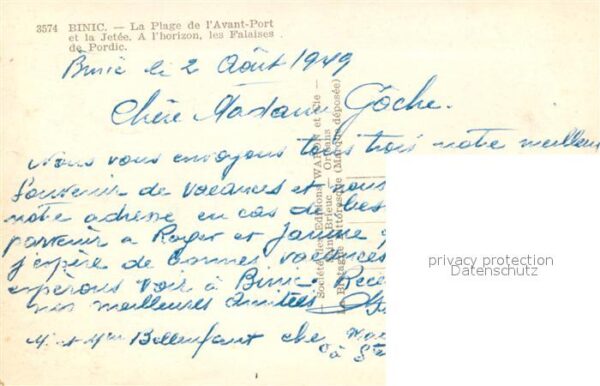 3574 BINIC. — La Plage de l'Avant-Port
et la Jetée. A l'horizon, les Falaises
de Pordic.
Binic le 2 Août 1949
Chère Madame Gôche.
Nous vous envoyons tous trois notre meilleur
souvenir de vacances et vous
notre adresse en cas de bes
parvenir a Roger et Janine
j'espère de bonnes vacances
espérons voir à Binic. Rece
nos meilleures amitiés
M. et Mme Bellenfant chez
— Société des Editions WARON et Cie —
Saint-Brieuc - Orléans
La Bretagne Pittoresque (Marque déposée)
privacy protection
Datenschutz